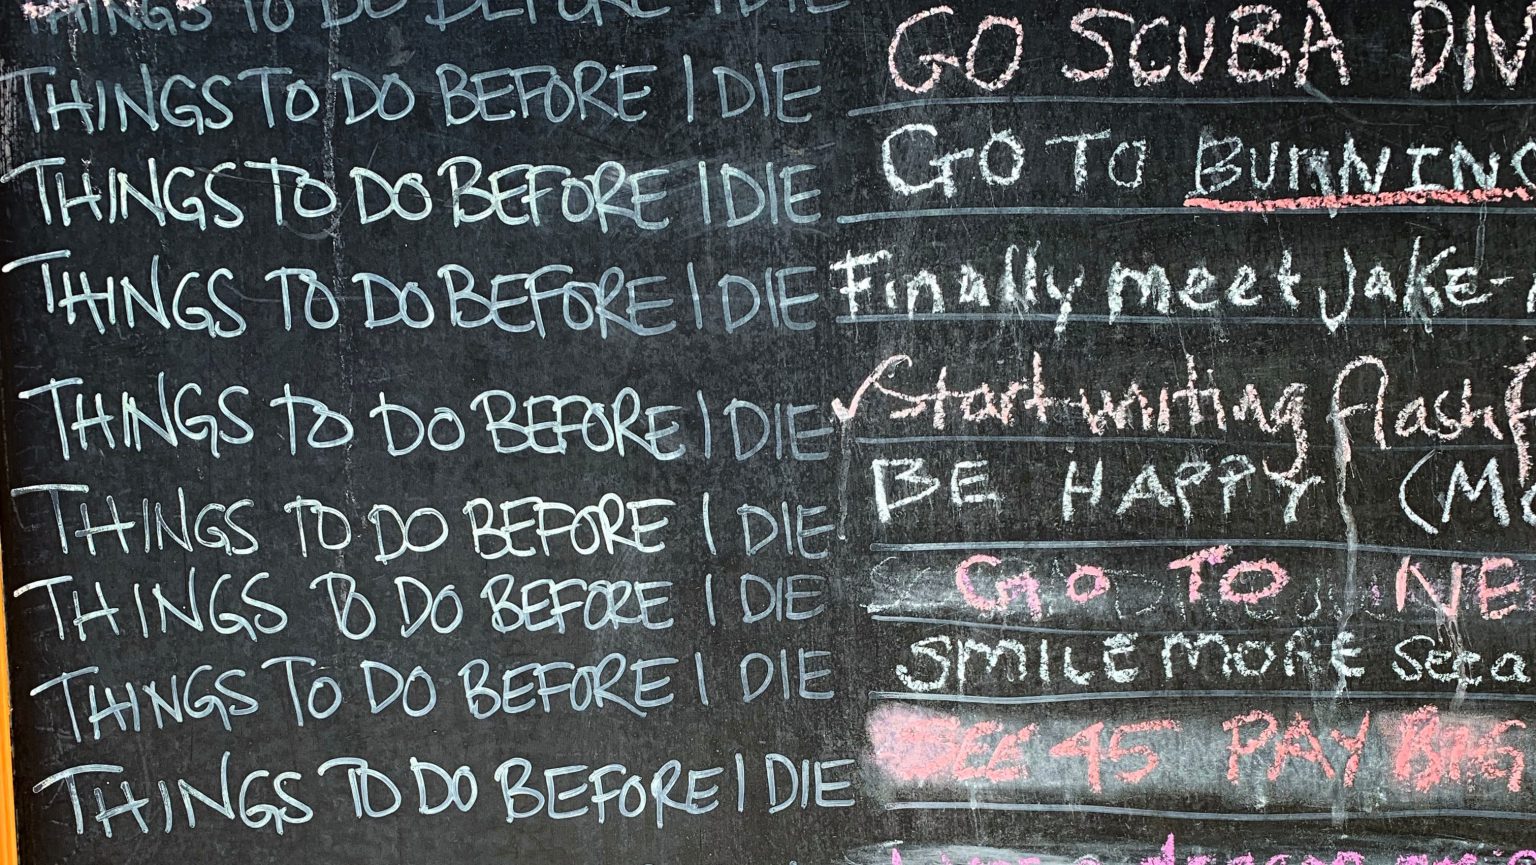 THINGS TO DO BEFORE I DIE GO SCUBA DIV
THINGS TO DO BEFORE I DIE GO TO BURNING
THINGS TO DO BEFORE I DIE Finally meet JAKE-
THINGS TO DO BEFORE I DIE Start writing flash
THINGS TO DO BEFORE I DIE BE HAPPY (MO
THINGS TO DO BEFORE I DIE GO TO NE
THINGS TO DO BEFORE I DIE SMILE MORE See a
THINGS TO DO BEFORE I DIE SEE 45 PAY BIG
THINGS TO DO BEFORE I DIE